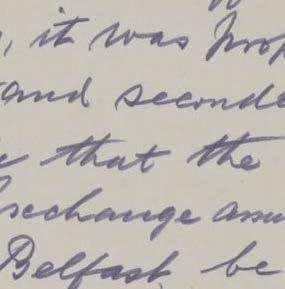 , it was prop
and seconde
that the
xchange assu
Belfast, be